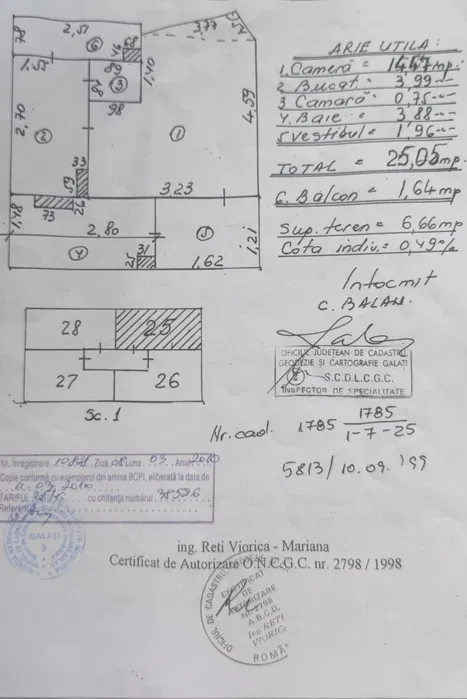 2,51
3,77
1,54
78
6
46
68
1,55
89
1,40
3
87
98
2,70
2
1
4,59
33
59
3,23
26
73
1,48
2,80
5
1,21
4
31
25
1,62
ARIE UTILA:
1. Cameră = 14,47 mp.
2 Bucăt = 3,99 -"-
3 Camară = 0,75 -"-
4. Baie = 3,88 -"-
5 Vestibul = 1,96 -"-
TOTAL = 25,05 mp.
6. Balcon = 1,64 mp
Sup. teren = 6,66 mp
Cota indiv. = 0,49%
Intocmit
C. BALAN.
28
25
27
26
Sc. 1
OFICIUL JUDETEAN DE CADASTRU,
GEODEZIE SI CARTOGRAFIE GALATI
S.C.D.L.C.G.C.
INSPECTOR DE SPECIALITATE
Nr. cad. 1785
1785
1-7-25
5813 / 10.09.'99
Nr. înregistrare Ziua 08 Luna 03 Anul 2010
Copie conformă cu exemplarul din arhiva BCPI, eliberată la data de
03 2010
TARIFUL cu chitanța numărul
Referent
GALAȚI
3
ing. Reti Viorica - Mariana
Certificat de Autorizare O.N.C.G.C. nr. 2798 / 1998
OFICIUL DE CADASTRU,
CERTIFICAT
DE
AUTORIZARE
Nr. 2798
A.B.C.D.
Ing. RETI
VIORICA
ROMÂ